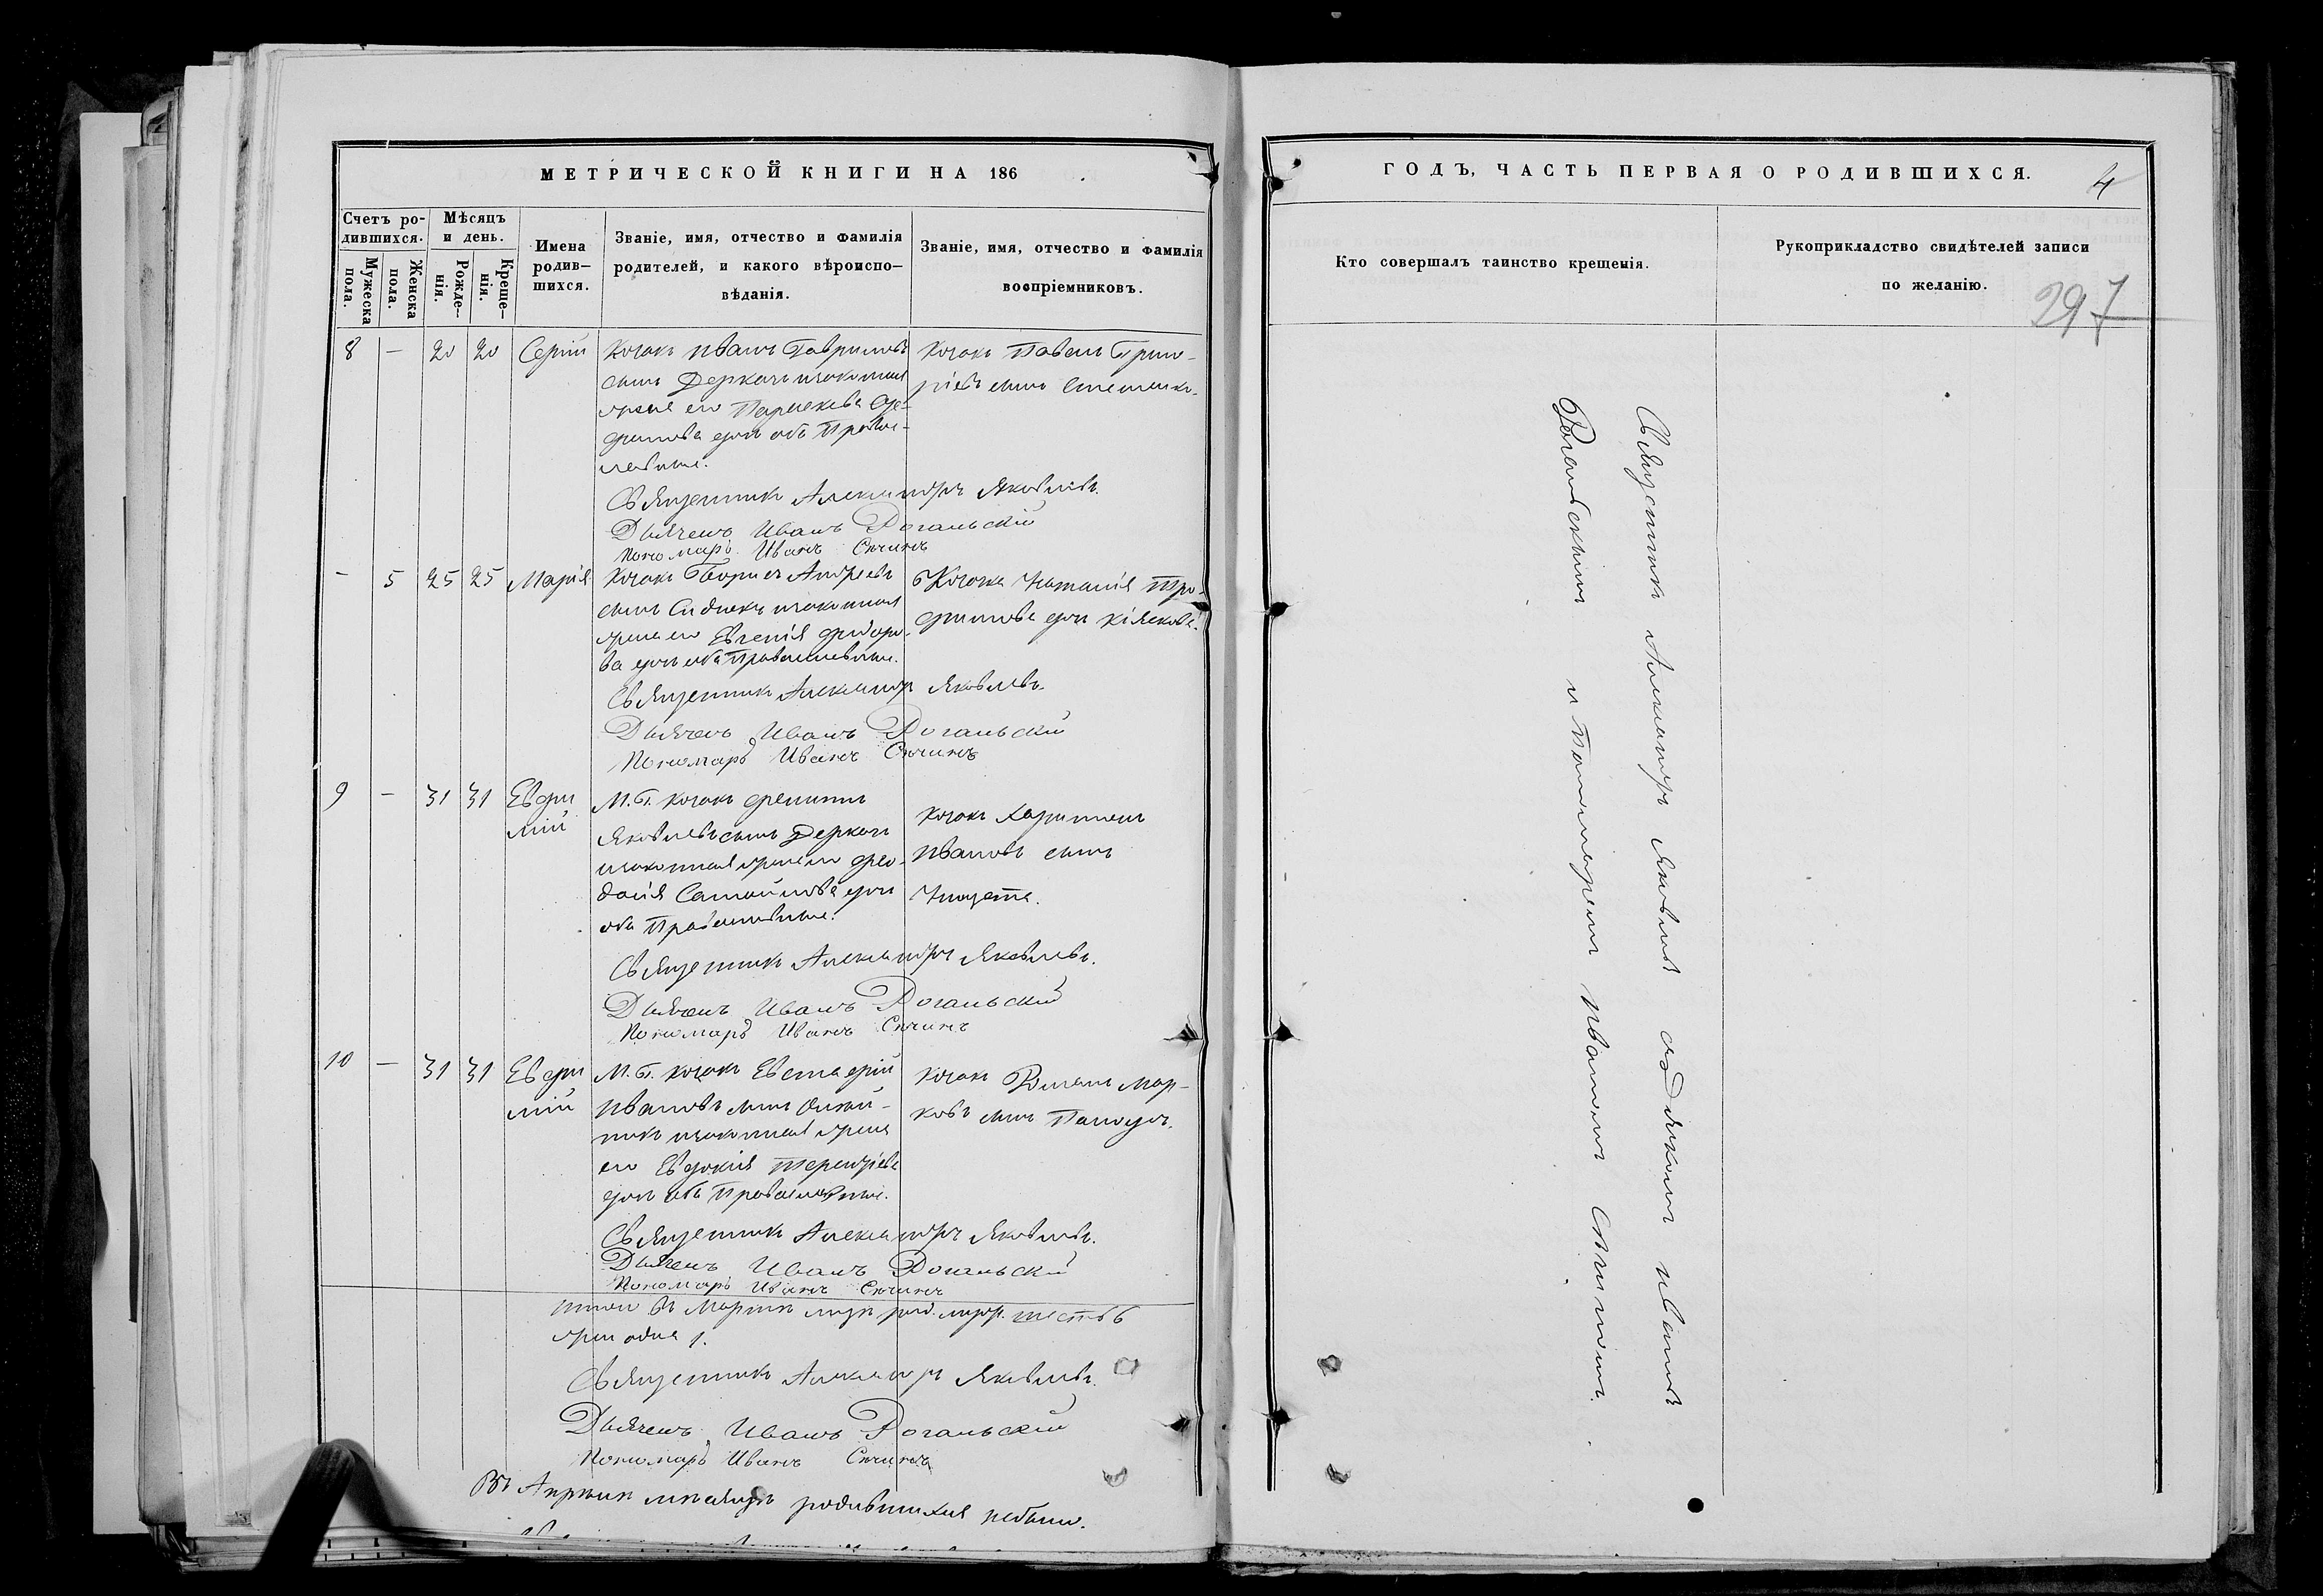 МЕТРИЧЕСКОЙ КНИГИ НА 186
Счетъ ро-
дившихся.
Мужеска
пола.
Женска
пола.
Мѣсяцъ
и день.
Рожде-
нія.
Креще-
нія.
Имена
родив-
шихся.
Званіе, имя, отчество и фамилія
родителей, и какого вѣроиспо-
вѣданія.
Званіе, имя, отчество и фамилія
воспріемниковъ.
8 — 20 20 Сергій
Козакъ Иванъ Гавриловъ
сынъ Деркачъ и законная
жена его Параскева
дочь оба Право-
славные.
Козакъ Павелъ Григо-
ріевъ сынъ
Священникъ Александръ Яковлевъ.
Дьячекъ Иванъ Рогальскій
Пономарь Иванъ
- 5 25 25 Марія
Козакъ Андреевъ
сынъ и законная
жена его Евгенія Федоро-
ва дочь оба Православные.
Козачка Наталія Тро-
фимова дочь
Священникъ Александръ Яковлевъ.
Дьячекъ Иванъ Рогальскій
Пономарь Иванъ
9 — 31 31 Евфи
мій
М. Б. козакъ
Яковлевъ сынъ Деркачъ
и законная жена его Фео-
досія Самойлова дочь
оба Православные.
Козакъ Харитонъ
Ивановъ сынъ
Священникъ Александръ Яковлевъ.
Дьячекъ Иванъ Рогальскій
Пономарь Иванъ
10 — 31 31 Евфи
мій
М. Б. козакъ Евстафій
Ивановъ сынъ Олей-
никъ и законная жена
его Евдокія Терентіева
дочь оба Православные.
Козакъ Романъ Мар-
ковъ сынъ
Священникъ Александръ Яковлевъ.
Дьячекъ Иванъ Рогальскій
Пономарь Иванъ
Итого въ Мартѣ шесть 6
жен одна 1.
Священникъ Александръ Яковлевъ.
Дьячекъ Иванъ Рогальскій
Пономарь Иванъ
Въ Апрѣлѣ мѣсяцѣ родившихся небыло.
ГОДЪ, ЧАСТЬ ПЕРВАЯ О РОДИВШИХСЯ.
4
Кто совершалъ таинство крещенія.
Рукоприкладство свидѣтелей записи
по желанію.
297
Священникъ Александръ Яковлевъ съ Дьячкомъ Иваномъ
Рогальскимъ и Пономаремъ Иваномъ